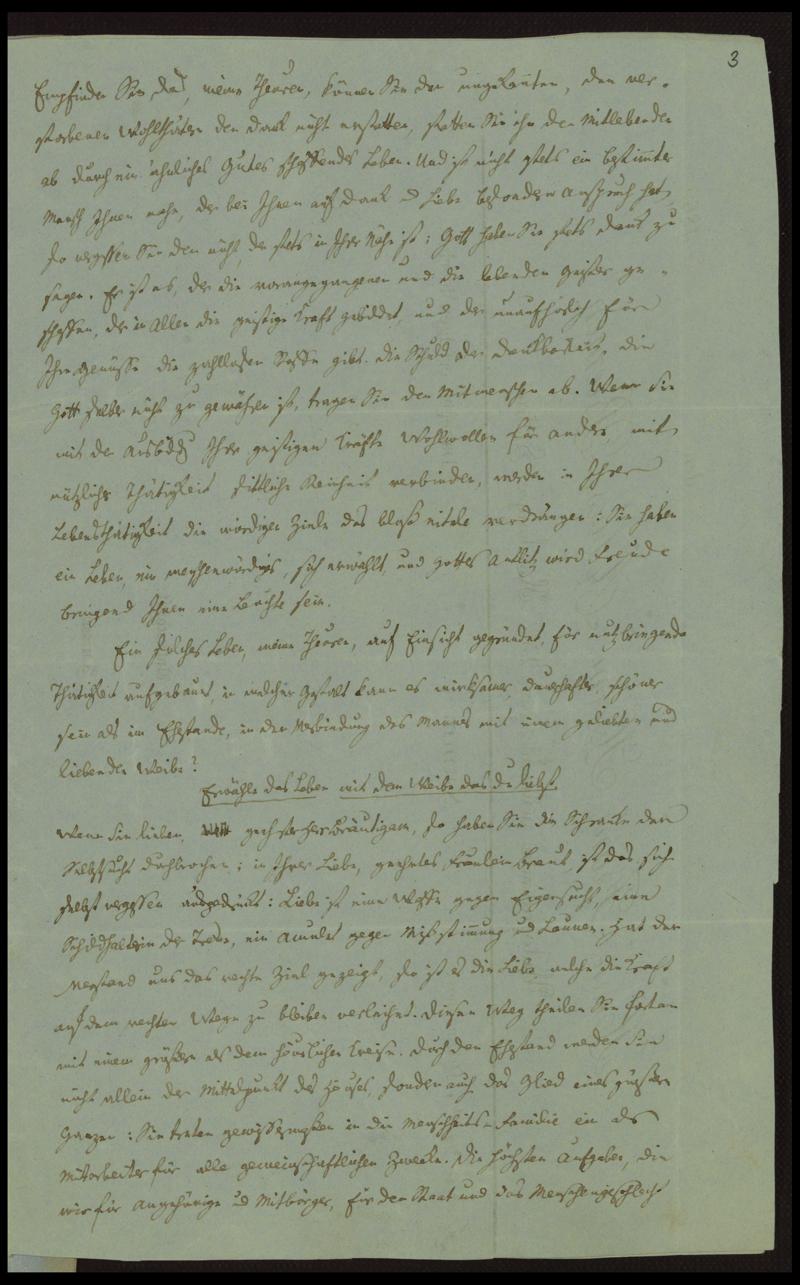 3
Empfinden Sie das, meine Theuren, können Sie den ungekannten, den ver-
storbenen Wohlthätern den Dank nicht erstatten, statten Sie ihn den Mitlebenden
ab durch ein ähnliches Gutes schaffendes Leben. Und ist nicht stets ein bestimmter
Mensch Ihnen nahe, der bei Ihnen auf Dank u Liebe besondern Anspruch hat,
so vergessen Sie den nicht, der stets in Ihrer Nähe ist: Gott haben Sie stets Dank zu
sagen. Er ist es, der die vorangegangenen und die lebenden Geister ge-
schaffen, der in Allen die geistige Kraft gebildet, und der unaufhörlich für
Ihre Genüsse die zahllosen Stoffe gibt. Die Schuld der Dankbarkeit, die
Gott selber nicht zu gewähren ist, tragen Sie den Mitmenschen ab. Wenn Sie
mit der Ausbildg Ihrer geistigen Kräfte Wohlwollen für andere, mit
nützlicher Thätigkeit sittliche Reinheit verbinden, werden in Ihrer
Lebensthätigkeit die würdigen Ziele das bloß eitele verdrängen: Sie haben
ein Leben, ein menschenwürdiges, sich erwählt, und Gottes Antlitz wird Freude
bringend Ihnen eine Leuchte sein.
Ein solches Leben, meine Theuren, auf Einsicht gegründet, für nutzbringende
Thätigkeit aufgebaut, in welcher Gestalt kann es wirksamer, dauerhafter, schöner
sein als im Ehestande, in der Verbindung des Mannes mit einem geliebten und
liebenden Weibe?
Erwähle das Leben mit dem Weibe das du liebst.
Wenn Sie lieben, geehrter Herr Bräutigam, so haben Sie die Schranke der
Selbstsucht durchbrochen; in Ihrer Liebe, geehrtes Fräulein Braut, ist das sich
selbst vergessen ausgedrückt: Liebe ist eine Waffe gegen Eigensucht, eine
Schildhalterin der Treue, ein Amulet gegen Mißstimmung und Launen. Hat der
Verstand uns das rechte Ziel gezeigt, so ist es die Liebe, welche die Kraft
auf dem rechten Wege zu bleiben verleihet. Diesen Weg theilen Sie fortan
mit einem größern als dem häuslichen Kreise. Durch den Ehestand werden Sie
nicht allein der Mittelpunkt des Hauses, sondern auch das Glied eines größern
Ganzen: Sie treten gewissermaßen in die Menschheits-Familie ein als
Mitarbeiter für alle gemeinschaftlichen Zwecke. Die höchsten Aufgaben, die
wir für Angehörige und Mitbürger, für den Staat und das Menschengeschlecht